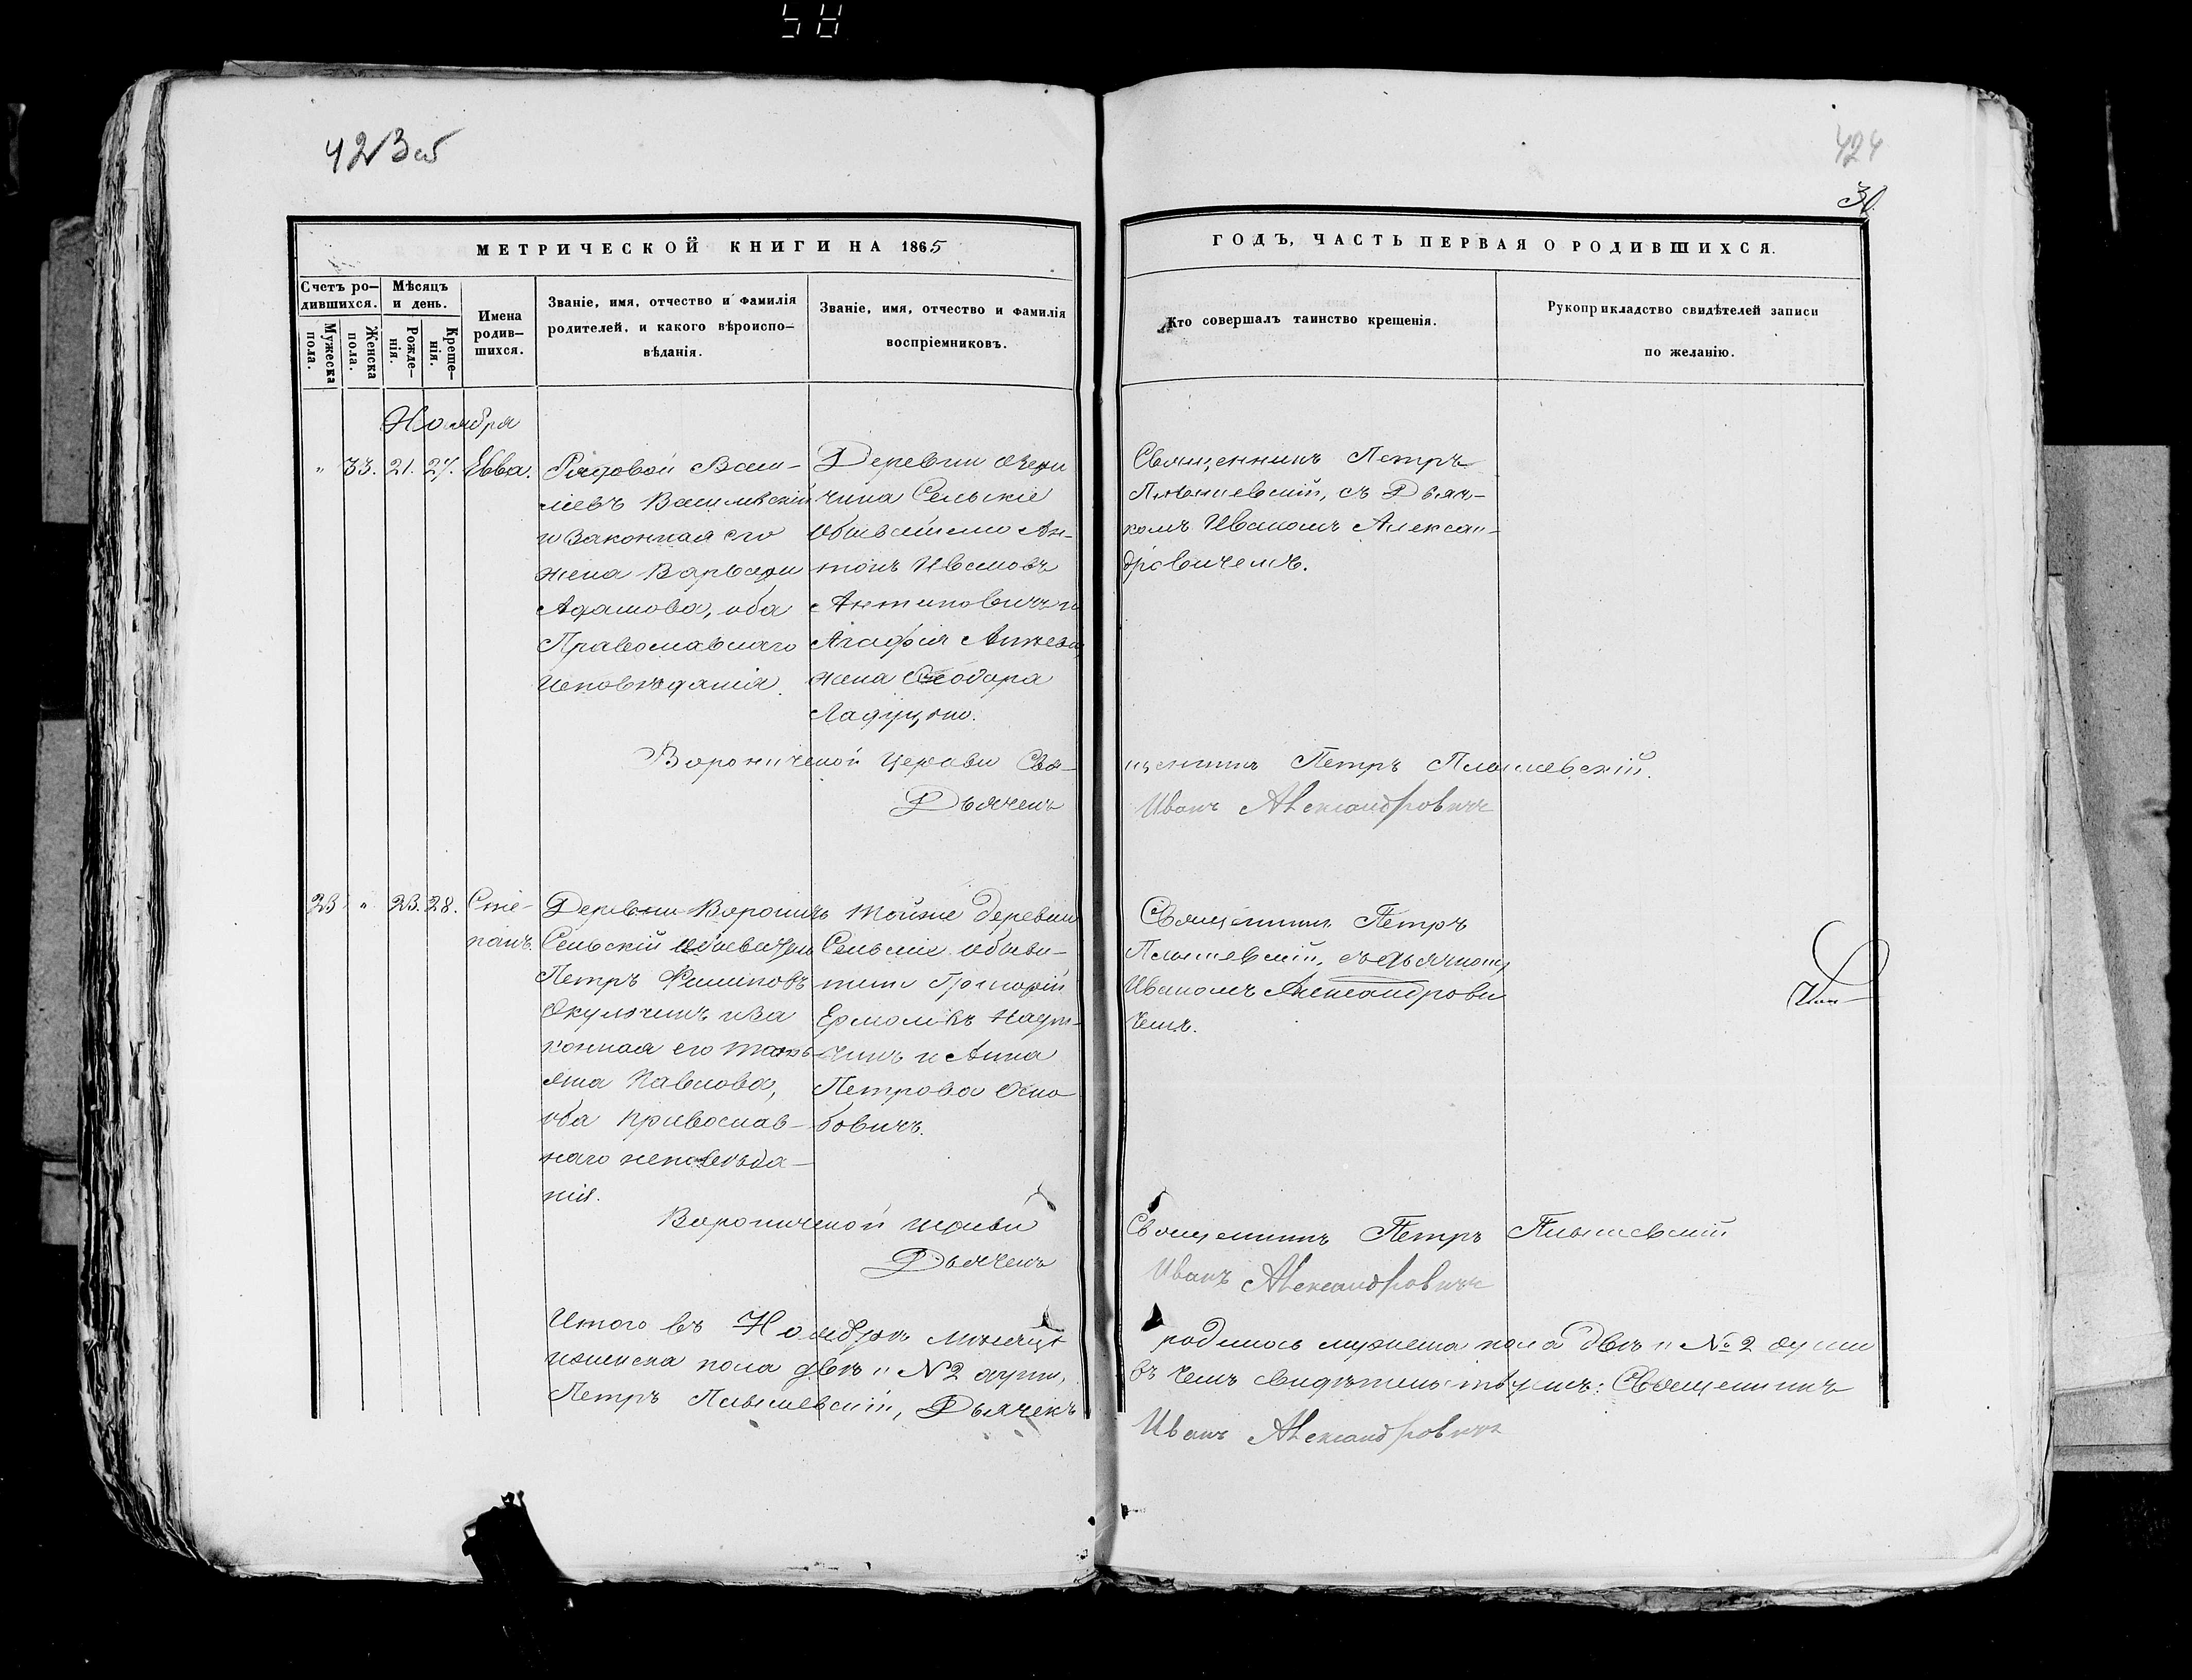 58
423 об
424
30
МЕТРИЧЕСКОЙ КНИГИ НА 1865
ГОДЪ, ЧАСТЬ ПЕРВАЯ О РОДИВШИХСЯ.
Счетъ ро-
дившихся.
Мужеска
пола.
Женска
пола.
Мѣсяцъ
и день.
Рожде-
нія.
Креще-
нія.
Имена
родив-
шихся.
Званіе, имя, отчество и фамилія
родителей, и какого вѣроиспо-
вѣданія.
Званіе, имя, отчество и фамилія
воспріемниковъ.
Кто совершалъ таинство крещенія.
Рукоприкладство свидѣтелей записи
по желанію.
Ноября
" 33. 21. 27. Евва.
Рядовой Васи-
лій
и Законная его
жена Варвара
Адамова, оба
Православнаго
Исповѣданія.
Деревни
Сельскіе
Обыватели Ан-
тонъ Ивановъ
Антиповичъ и
Агафія
жена Ѳеодора
Священникъ Петръ
съ Дьяч-
комъ Иваномъ Алексан-
дровичемъ.
Вороничской Церкви Свя-
щенникъ Петръ
Дьячекъ
Иванъ Александровичъ
23 " 23. 28. Сте-
панъ.
Деревни Вороничь
Сельскій обыватель
Петръ Филиповъ
Окуличъ и За
конная его Тать-
яна Павлова,
оба Православ-
наго исповѣда-
нія.
Тойже деревни
Сельскіе обыва-
тели Григорій
Ермолаевъ
и Анна
Петрова
бовичъ.
Священникъ Петръ
съ дьячкомъ
Иваномъ Александрови
чемъ.
Вороничской церкви
Священникъ Петръ
Дьячекъ
Иванъ Александровичъ
Итого въ Ноябрѣ мѣсяцѣ
родилось мужеска пола двѣ " №2 души
женска пола двѣ " №2 души,
въ чемъ свидѣтельствуемъ: Священникъ
Петръ Дьячекъ
Иванъ Александровичъ